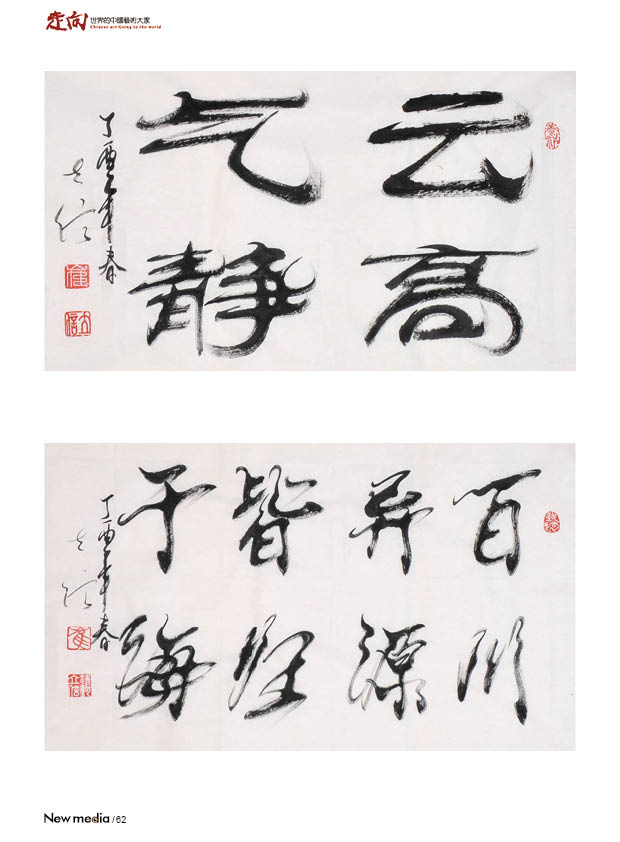 走向 世界的中國藝術大家
Chinese art Going to the world
云高
气静
丁酉年春
百川
异源
皆归
于海
丁酉年春
New media /62